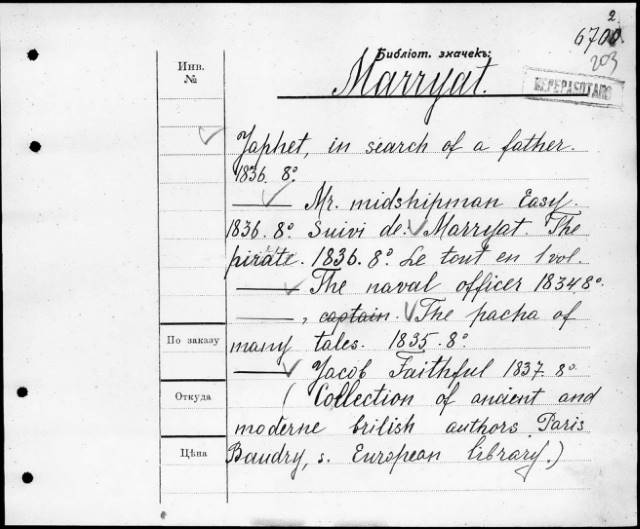 2
6700
203
Библіот. значекъ:
Инв.
№
Marryat.
ПЕРЕРАБОТАНО
Japhet, in search of a father.
1836. 8º
—— Mr. midshipman Easy.
1836. 8º Suivi de: Marryat. The
pirate. 1836. 8º Le tout en 1 vol.
—— The naval officer 1834. 8º.
——, captain. The pacha of
many tales. 1835. 8º
По заказу
—— Jacob Faithful 1837. 8º
Откуда
(Collection of ancient and
moderne british authors. Paris
Цѣна
Baudry, s. European library.)